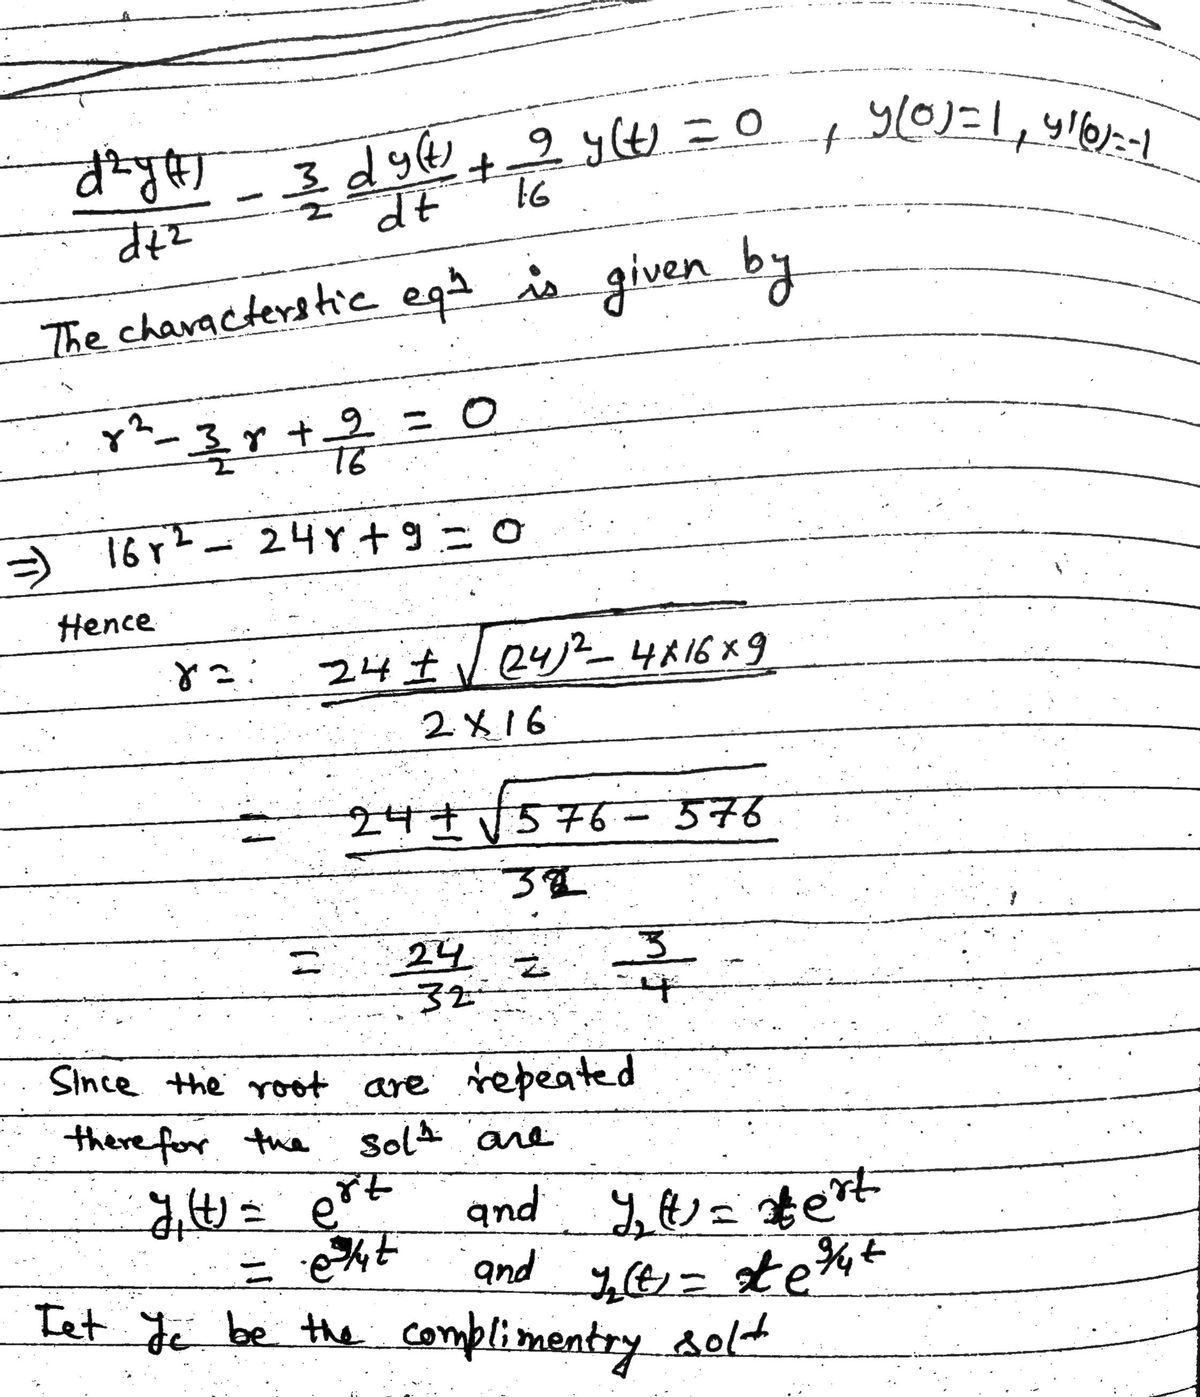 d²y(t)/dt² - 3/2 dy(t)/dt + 9/16 y(t) = 0 , y(0)=1, y'(0)=-1
The characterstic eqⁿ is given by
r² - 3/2 r + 9/16 = 0
⇒ 16r² - 24r + 9 = 0
Hence
r = 24 ± √((24)² - 4×16×9) / 2×16
= 24 ± √(576 - 576) / 32
= 24/32 = 3/4
Since the root are repeated
therefor the solⁿ are
y₁(t) = e^rt and y₂(t) = te^rt
= e^3/4t and y₂(t) = te^3/4t
Let yc be the complimentry solⁿ